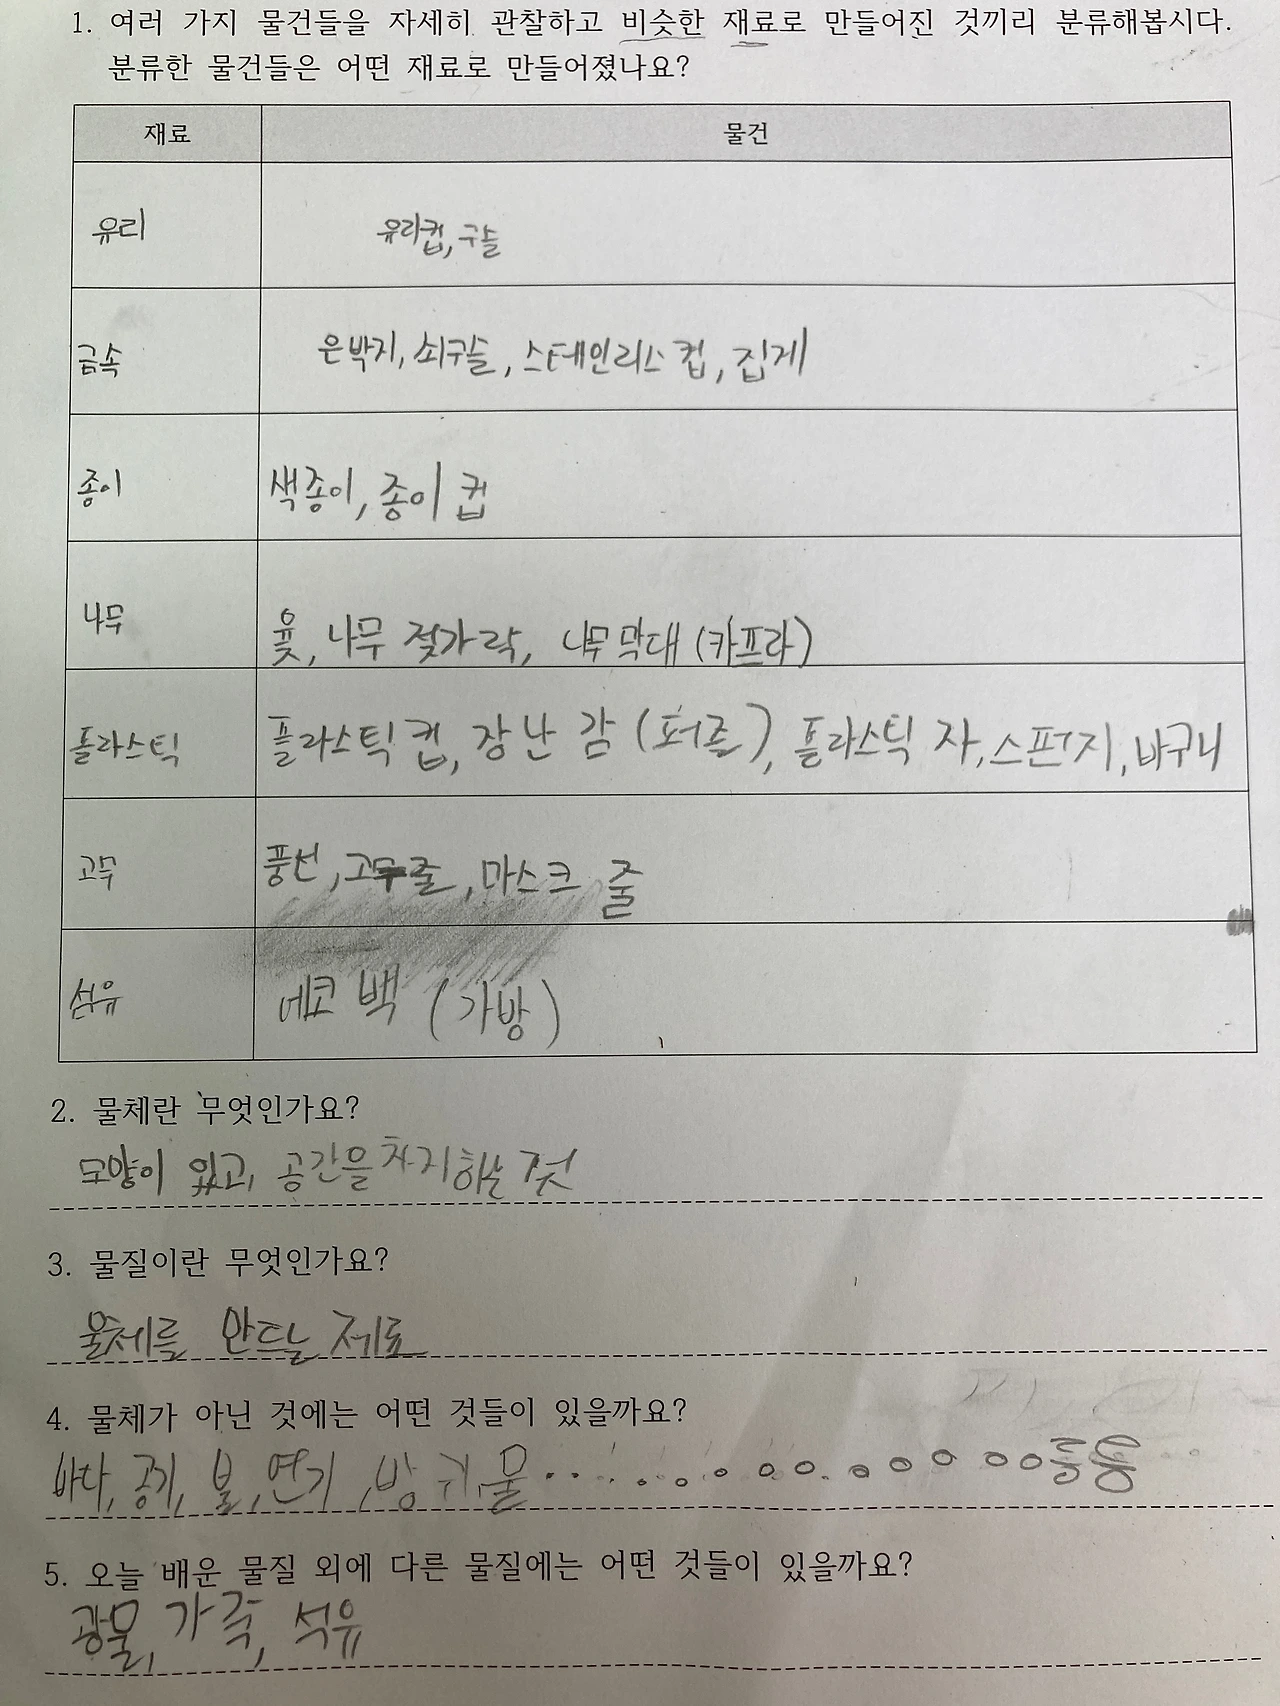 1. 여러 가지 물건들을 자세히 관찰하고 비슷한 재료로 만들어진 것끼리 분류해봅시다.
분류한 물건들은 어떤 재료로 만들어졌나요?
재료 물건
유리 유리컵, 구슬
금속 은박지, 쇠구슬, 스테인리스 컵, 집게
종이 색종이, 종이 컵
나무 윷, 나무 젖가락, 나무막대 (카프라)
플라스틱 플라스틱 컵, 장난감 (퍼즐), 플라스틱 자, 스펀지, 바구니
고무 풍선, 고무줄, 마스크 줄
섬유 에코 백 (가방)
2. 물체란 무엇인가요?
모양이 있고, 공간을 차지하는 것
3. 물질이란 무엇인가요?
물체를 만드는 제료
4. 물체가 아닌 것에는 어떤 것들이 있을까요?
바다, 공기, 불, 연기, 방귀, 물
5. 오늘 배운 물질 외에 다른 물질에는 어떤 것들이 있을까요?
광물, 가죽, 석유